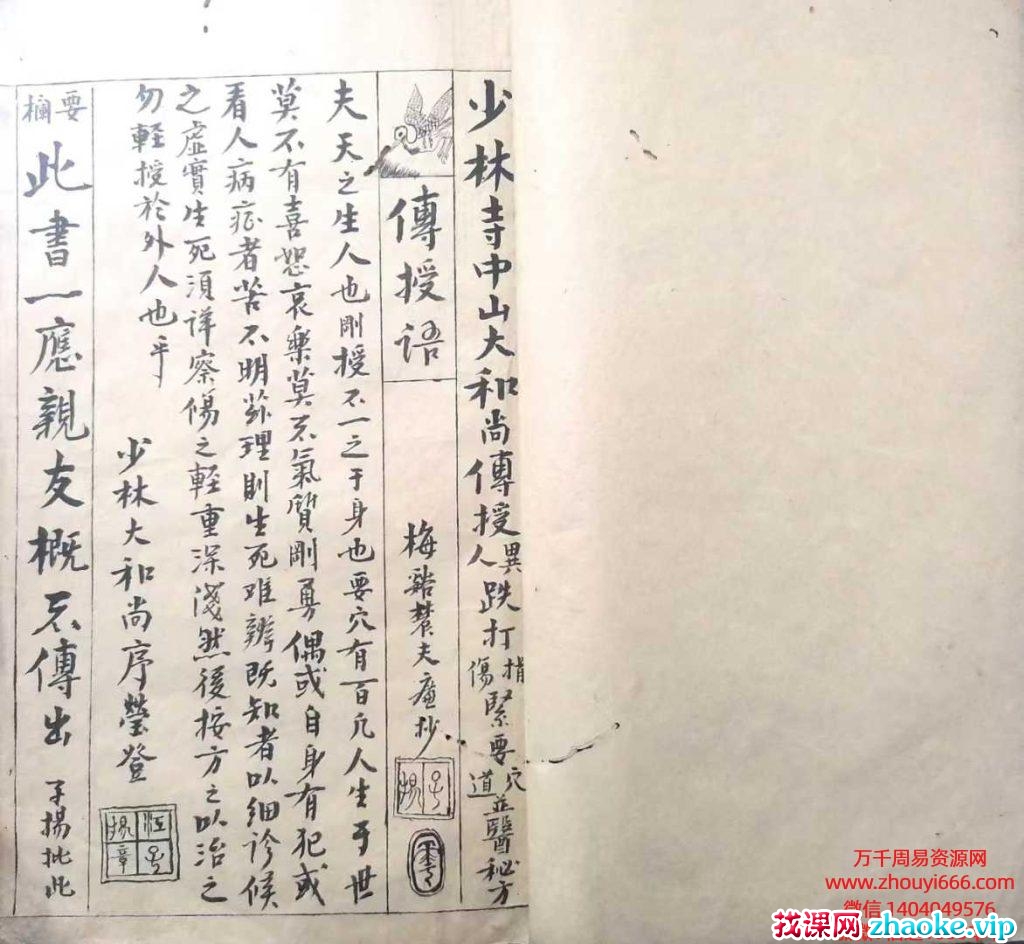 少林寺中山大和尚傳授異人跌打損傷緊要穴道並醫秘方
傳授語
梅谿 夫 抄
夫天之生人也剛授不一之于身也要穴有百几人生于世
莫不有喜怒哀樂莫不氣質剛勇偶或自身有犯或
看人病症者苦不明 理則生死难辨既知者以細診候
之虛實生死須详察傷之輕重深淺然後按方之以治之
勿輕授於外人也乎
少林大和尚序瑩登
要欄
此書一應親友概不傳出 子揚批此
万千周易资源网
www.zhouyi666.com
微信 1404049576
找课网 zhaoke.vip